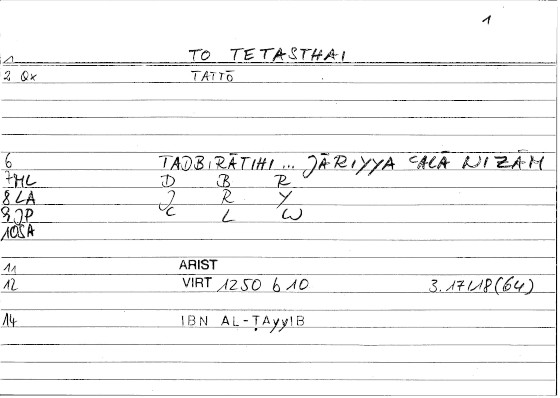 1
1 TO TETASTHAI
2 Qx TATTŌ
6 TADBĪRĀTIHI ... JĀRIYYA ʿALĀ NIZĀM
7 ML D B R
8 LA J R Y
9 JP ʿ L W
10 SA
11 ARIST
12 VIRT 1250 b 10 3.17/18 (64)
14 IBN AL-ṬAyyIB